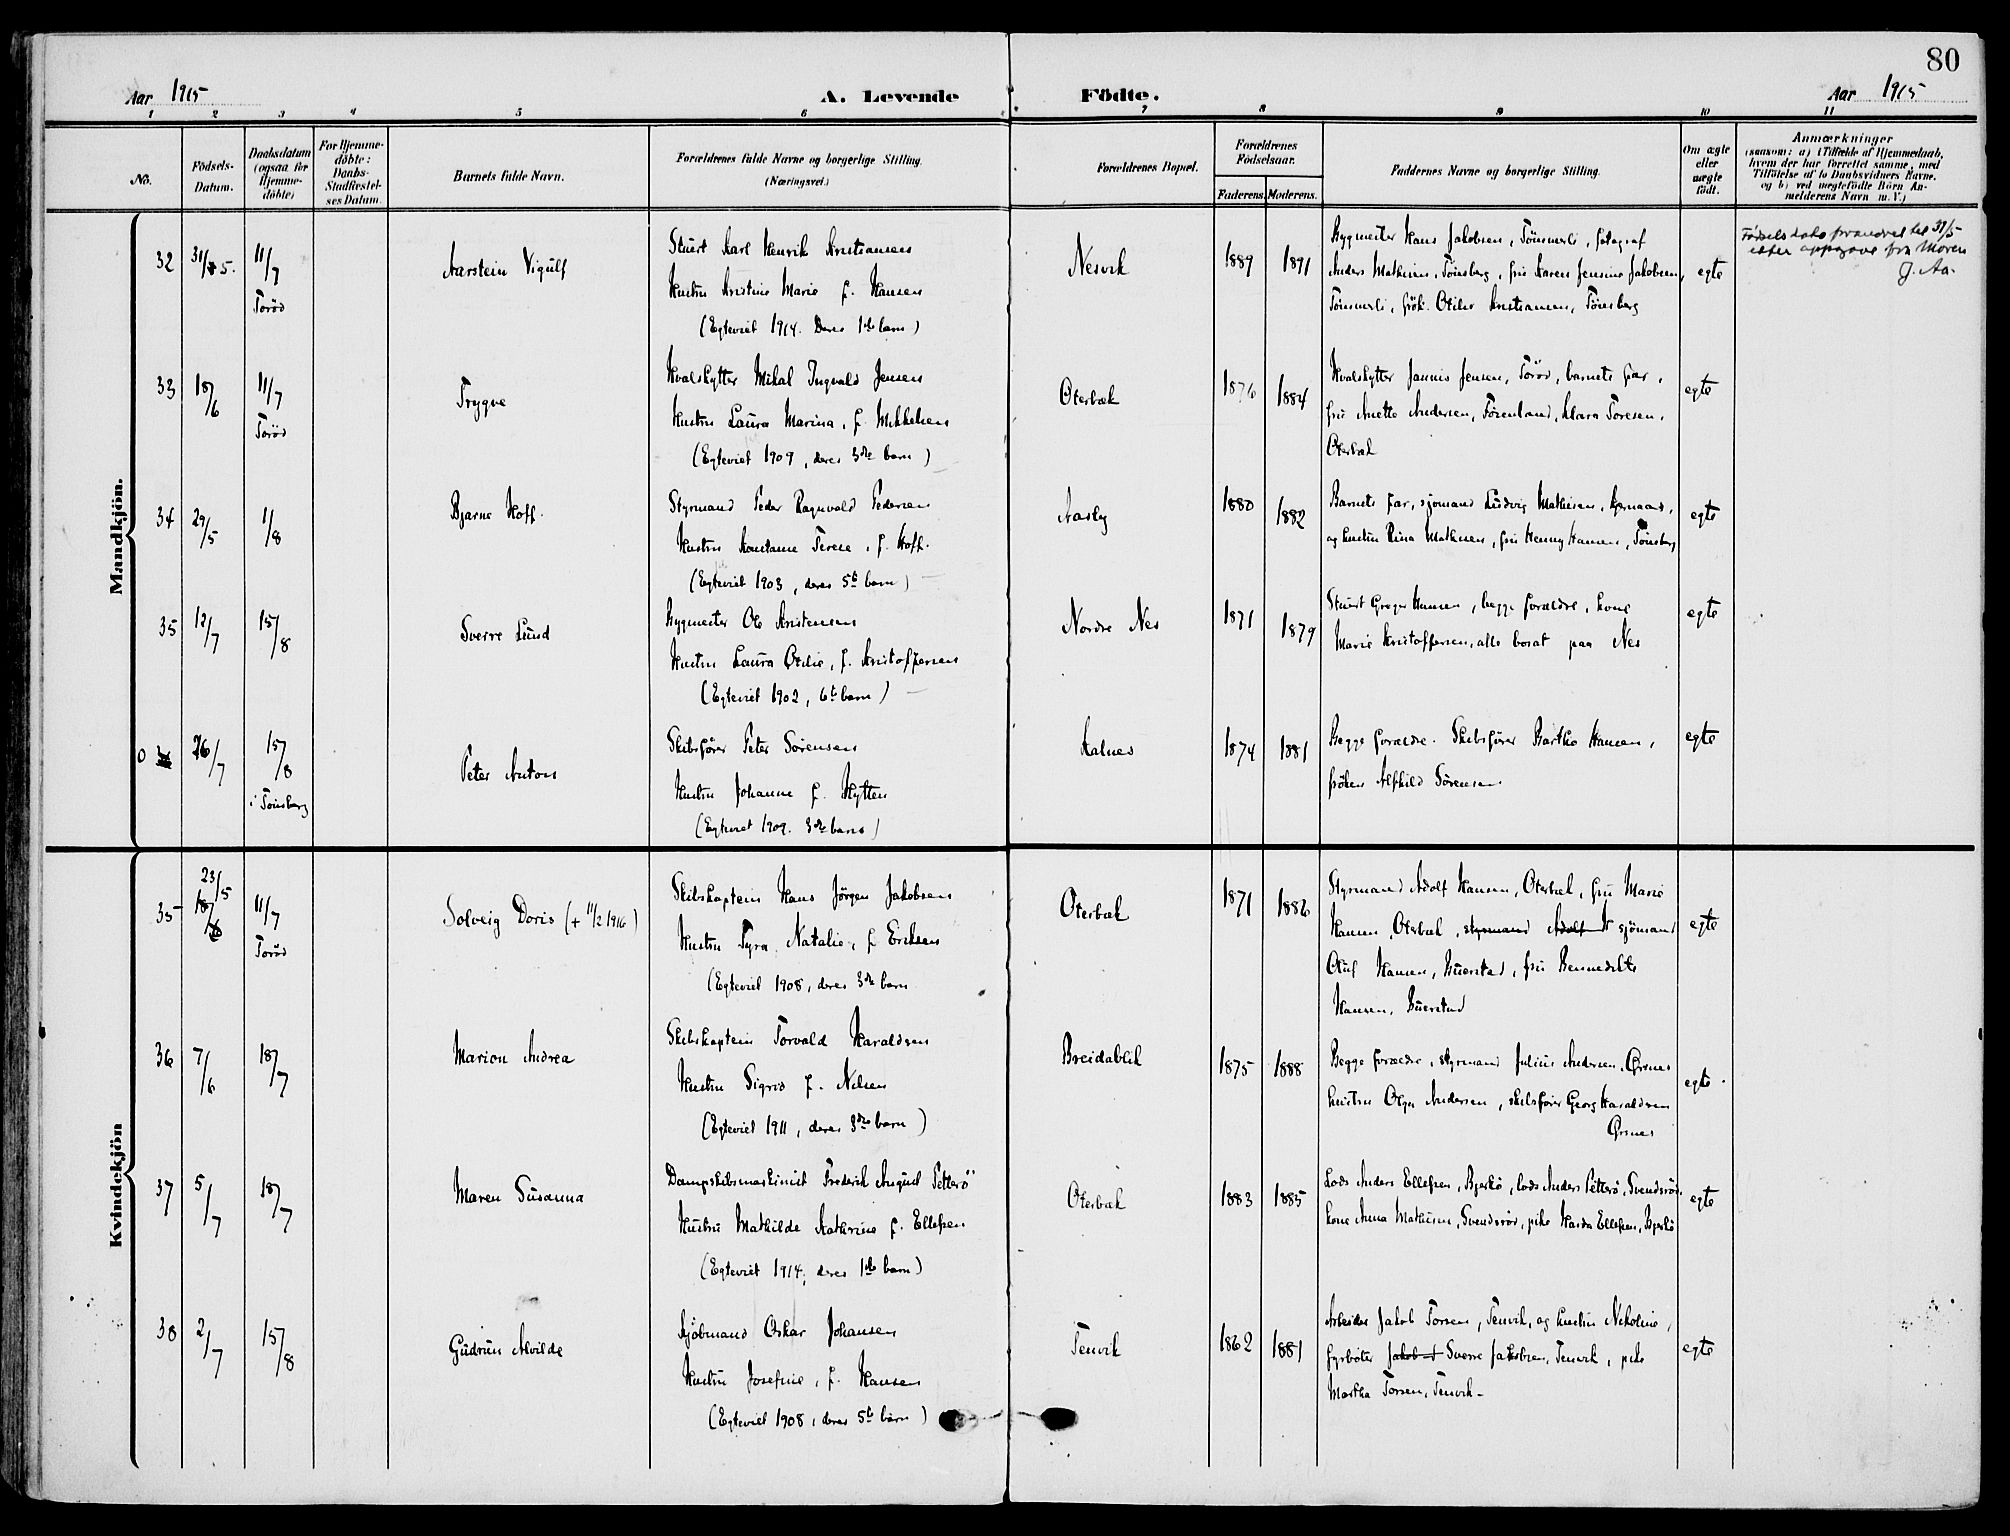 80
Aar 1915
A. Levende Födte.
Aar 1915
1 2 3 4 5 6 7 8 9 10 11
No.
Födsels-Datum.
Daabsdatum (ogsaa for Hjemme-döbte)
For Hjemme-döbte: Daabs-Stadfæstel-ses Datum.
Barnets fulde Navn.
Forældrenes fulde Navne og borgerlige Stilling.
(Næringsvei.)
Forældrenes Bopæl.
Forældrenes Födselsaar.
Faderens. Moderens.
Faddernes Navne og borgerlige Stilling.
Om ægte eller uægte födt.
Anmærkninger
(saasom: a) i Tilfælde af Hjemmedaab, hvem der har forrettet samme, med Tilföielse af to Daabsvidners Navne, og b) ved uægtefödte Börn An-melderens Navn m. V.)
Mandkjön.
32 31/5. 11/7 Torød
Aarstein Vigulf
Stuert Karl Henrik Kristiansen
Hustru Kristine Marie f. Hansen
(Egteviet 1914. Deres 1ste barn)
Nesvik
1889 1891
Bygmester Hans Jakobsen, Tömmerli, fotograf
Anders Mathisen, Tönsberg, fru Karen Jensine Jakobsen,
Tömmerli, frök. Otilie Kristiansen, Tönsberg
egte
Fødselsdato forandret til 31/5
efter oppgave fra Moren
J. Aa.
33 18/6 11/7 Torød
Trygve
Hvalskytter Mikal Ingvald Jensen
Hustru Laura Marina, f. Mikkelsen
(Egteviet 1909, deres 3die barn)
Oterbæk
1876 1884
Hvalskytter Jannis Jensen, Torød, barnets far,
fru Anette Andersen, Klara Toresen,
Oterbæk
egte
34 29/5 1/8
Bjarne Hoff.
Styrmand Peder Ragnvald Pedersen
Hustru Konstanse Terese, f. Hoff.
(Egteviet 1903, deres 5te barn)
Aasly
1880 1882
Barnets far, sjömand Ludvig Mathisen,
og hustru Rina Mathisen, fru Henny Hansen, Tönsberg
egte
35 12/7 15/8
Sverre Lund
Bygmester Ole Kristensen
Hustru Laura Otilie, f. Kristoffersen
(Egteviet 1902, 6te barn)
Nordre Nes
1871 1879
Stuert Greger Hansen, begge forældre, kone
Marie Kristoffersen, alle bosat paa Nes
egte
0 26/7 15/8 i Tönsberg
Peter Anton
Skibsfører Peter Sörensen
Hustru Johanne f. Hytten
(Egteviet 1909. 3die barn)
Kalnes
1874 1881
Begge forældre. Skibsfører Hansen,
fröken Alfhild Sörensen
egte
Kvindekjön
35 23/5 18/6 11/7 Torød
Solveig Doris (+ 11/2 1916)
Skibskaptein Hans Jörgen Jakobsen
Hustru Tyra Natalie, f. Eriksen
(Egteviet 1908, deres 3die barn
Oterbæk
1871 1886
Styrmand Adolf Hansen, Oterbæk, fru Marie
Hansen, Oterbæk, styrmand Adolf H sjömand
Oluf Hansen, Buerstad, fru Bennedikte
Hansen, Buerstad
egte
36 7/6 18/7
Marion Andrea
Skibskaptein Torvald Haraldsen
Hustru Sigrid f. Nilsen
(Egteviet 1911, deres 3die barn)
Breidablik
1875 1888
Begge forældre, styrmand Julius Andersen,
hustru Olga Andersen, skibsfører Georg Haraldsen
egte
37 5/7 18/7
Maren Susanna
Dampskibsmaskinist Frederik August Petterö
Hustru Mathilde Kathrine f. Ellefsen
(Egteviet 1914, deres 1ste barn)
Oterbæk
1883 1885
Lods Anders Ellefsen, Bjerkö, lods Anders Petterö, Svendsröd,
kone Anna Mathisen, Svendsröd, pike Ellefsen, Bjerkö
egte
38 2/7 15/8
Gudrun Alvilde
Sjöbmand Oskar Johansen
Hustru Josefine, f. Hansen
(Egteviet 1908, deres 5te barn)
Tenvik
1862 1881
Arbeider Jakob Torsen, Tenvik, og hustru Nikoline,
fyrböter Jakob J Sverre Jakobsen, Tenvik, pike
Martha Torsen, Tenvik.
egte